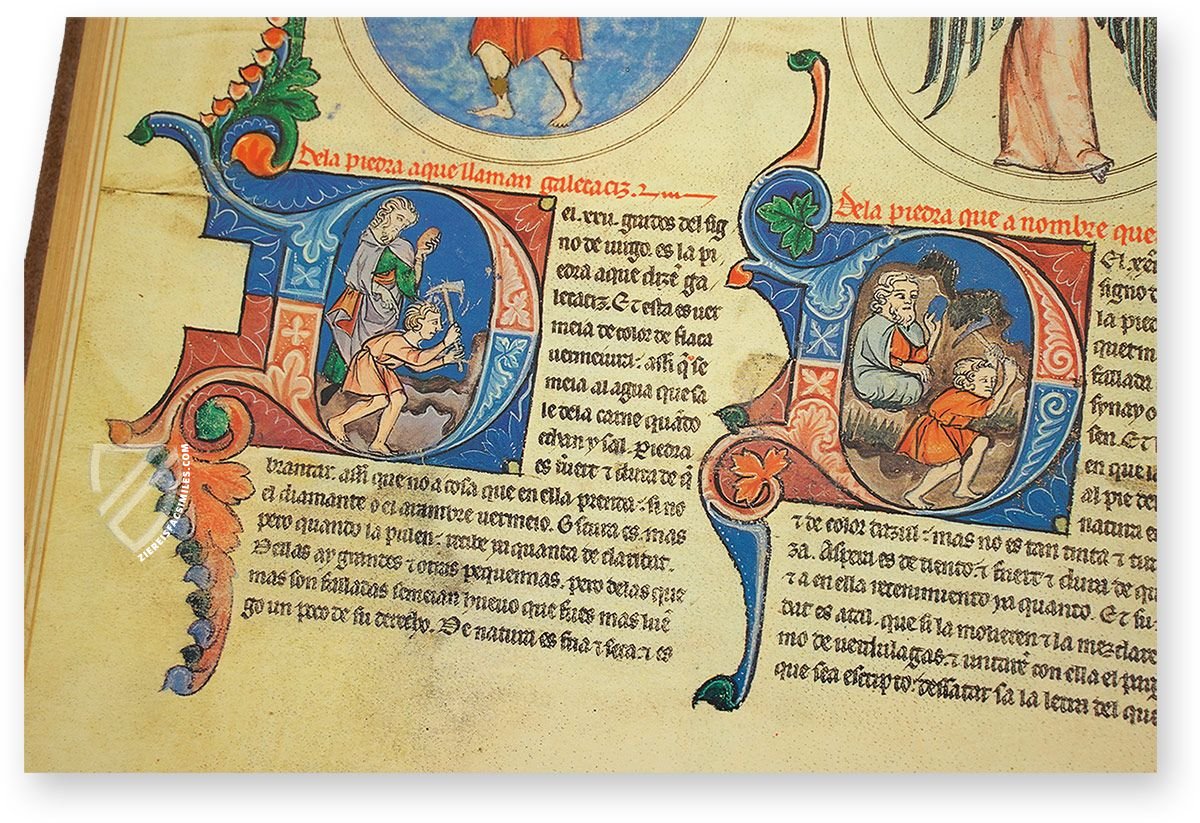 Dela piedra aque llaman galeraciz.
el .xxii. grados del sig
no de uirgo. es la pi
edra aque dizẽ ga
leraciz. Et esta es uer
meia de color de flaca
uermeiura: assi q̃ se
meia al agua que sa
le dela carne quãdo
echan y sal. Piedra
es fuert ⁊ dura de q̃
brantar. assi que no a cosa que en ella prenda: si no
el diamante o el arambre uermeio. Escura es. mas
pero quando la pulen: recibe ya quanta de claridat.
Dellas ay grandes ⁊ otras pequennas. pero delas que
mas son falladas semeian hueuo que fues mas luẽ
go un poco de su derecho. De natura es fria ⁊ seca: ⁊ es
Dela piedra que a nombre que
signo d
la pied
quer m
fallada
sen. Et
en que l
al pie de
natura e
⁊ de color dazul: mas no es tan tinta ⁊ tur
za. Aspera es de tiento. ⁊ fuert ⁊ dura de q
⁊ a en ella retenimiento ya quanto. Et su
dat es atal. que si la molieren ⁊ la mezclare
mo de uerdulagas. ⁊ untarẽ con ella el purg
que sea escripto. dessatar sa la letra del que
ZIERELSFACSIMILES.COM